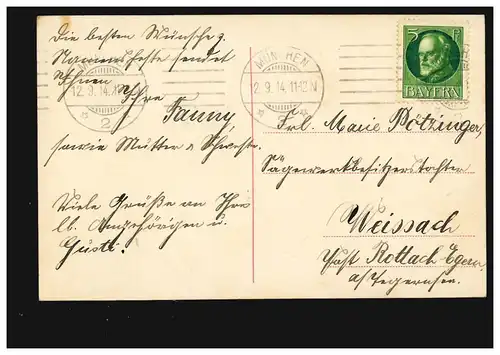 Die besten Wünsche z.
Namensfeste sendet
Ihnen Ihre
Fanny
sowie Mutter & Schwester.
Viele Grüße an Ihre
lb. Angehörigen u.
Gusti.
MÜNCHEN
12.9.14.
2
MÜNCHEN
12.9.14 11-12 N
2
5 Pf
BAYERN
Frl. Marie Pötzinger,
Sägewerkbesitzerstochter
Weissach
Post Rottach Egern
a/Tegernsee.